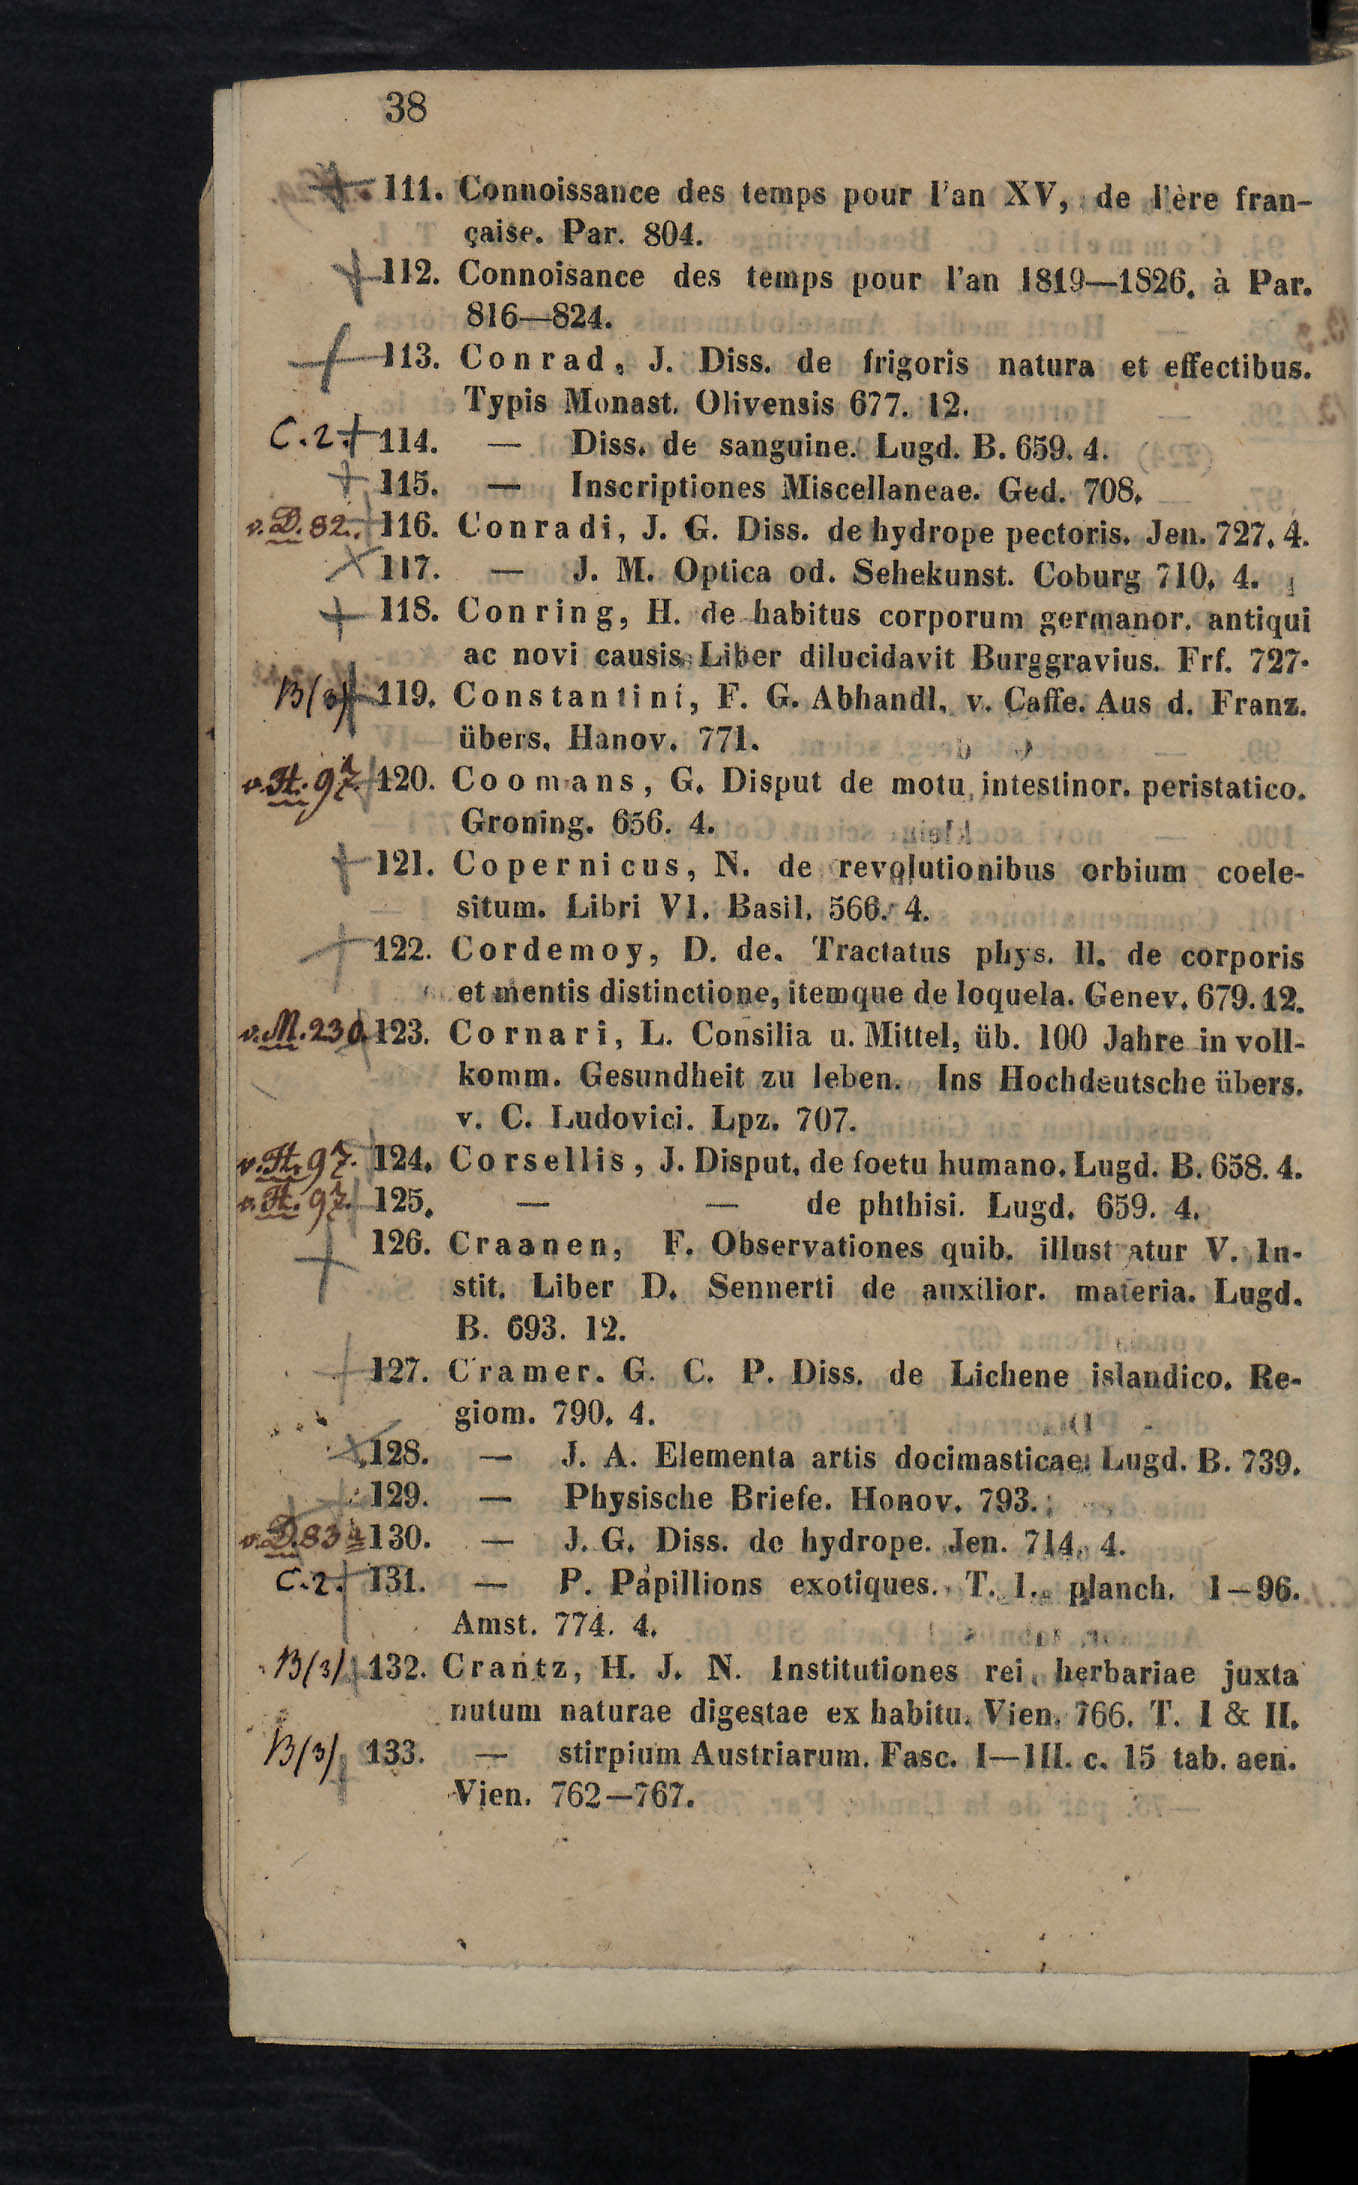 38
111. Connoissance des temps pour l'an XV, de l'ère fran-
çaise. Par. 804.
112. Connoisance des temps pour l'an 1819—1826. à Par.
816—824.
113. Conrad, J. Diss. de frigoris natura et effectibus.
Typis Monast. Olivensis 677. 12.
C.2. 114. — Diss. de sanguine. Lugd. B. 659. 4.
115. — Inscriptiones Miscellaneae. Ged. 708.
v.D.82. 116. Conradi, J. G. Diss. de hydrope pectoris. Jen. 727. 4.
117. — J. M. Optica od. Sehekunst. Coburg 710. 4.
118. Conring, H. de habitus corporum germanor. antiqui
ac novi causis. Liber dilucidavit Burggravius. Frf. 727.
B(3) 119. Constantini, F. G. Abhandl. v. Caffe. Aus d. Franz.
übers. Hanov. 771.
v.H.97. 120. Coomans, G. Disput de motu intestinor. peristatico.
Groning. 656. 4.
121. Copernicus, N. de revolutionibus orbium coele-
situm. Libri VI. Basil. 566. 4.
122. Cordemoy, D. de. Tractatus phys. II. de corporis
et mentis distinctione, itemque de loquela. Genev. 679. 12.
v.M.230. 123. Cornari, L. Consilia u. Mittel, üb. 100 Jahre in voll-
komm. Gesundheit zu leben. Ins Hochdeutsche übers.
v. C. Ludovici. Lpz. 707.
v.H.97. 124. Corsellis, J. Disput. de foetu humano. Lugd. B. 658. 4.
v.H.97. 125. — — de phthisi. Lugd. 659. 4.
126. Craanen, F. Observationes quib. illust atur V. In-
stit. Liber D. Sennerti de auxilior. materia. Lugd.
B. 693. 12.
127. Cramer. G. C. P. Diss. de Lichene islandico. Re-
giom. 790. 4.
128. — J. A. Elementa artis docimasticae. Lugd. B. 739.
129. — Physische Briefe. Honov. 793.
v.D.83 130. — J. G. Diss. de hydrope. Jen. 714. 4.
C.2. 131. — P. Papillions exotiques. T. 1. planch. 1—96.
Amst. 774. 4.
B(3) 132. Crantz, H. J. N. Institutiones rei herbariae juxta
nutum naturae digestae ex habitu. Vien. 766. T. I & II.
B(3) 133. — stirpium Austriarum. Fasc. I—III. c. 15 tab. aen.
Vien. 762—767.